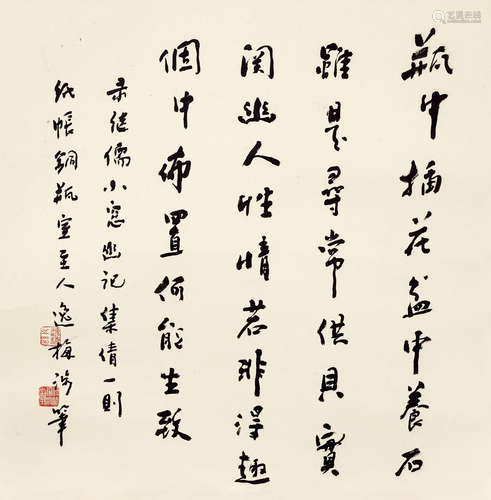 瓶中插花盆中養石
雖是尋常供具實
関幽人性情若非得趣
個中佈置何能生致
录继儒小窓幽记集倩一则
纸帳銅瓶室主人逸梅涉筆